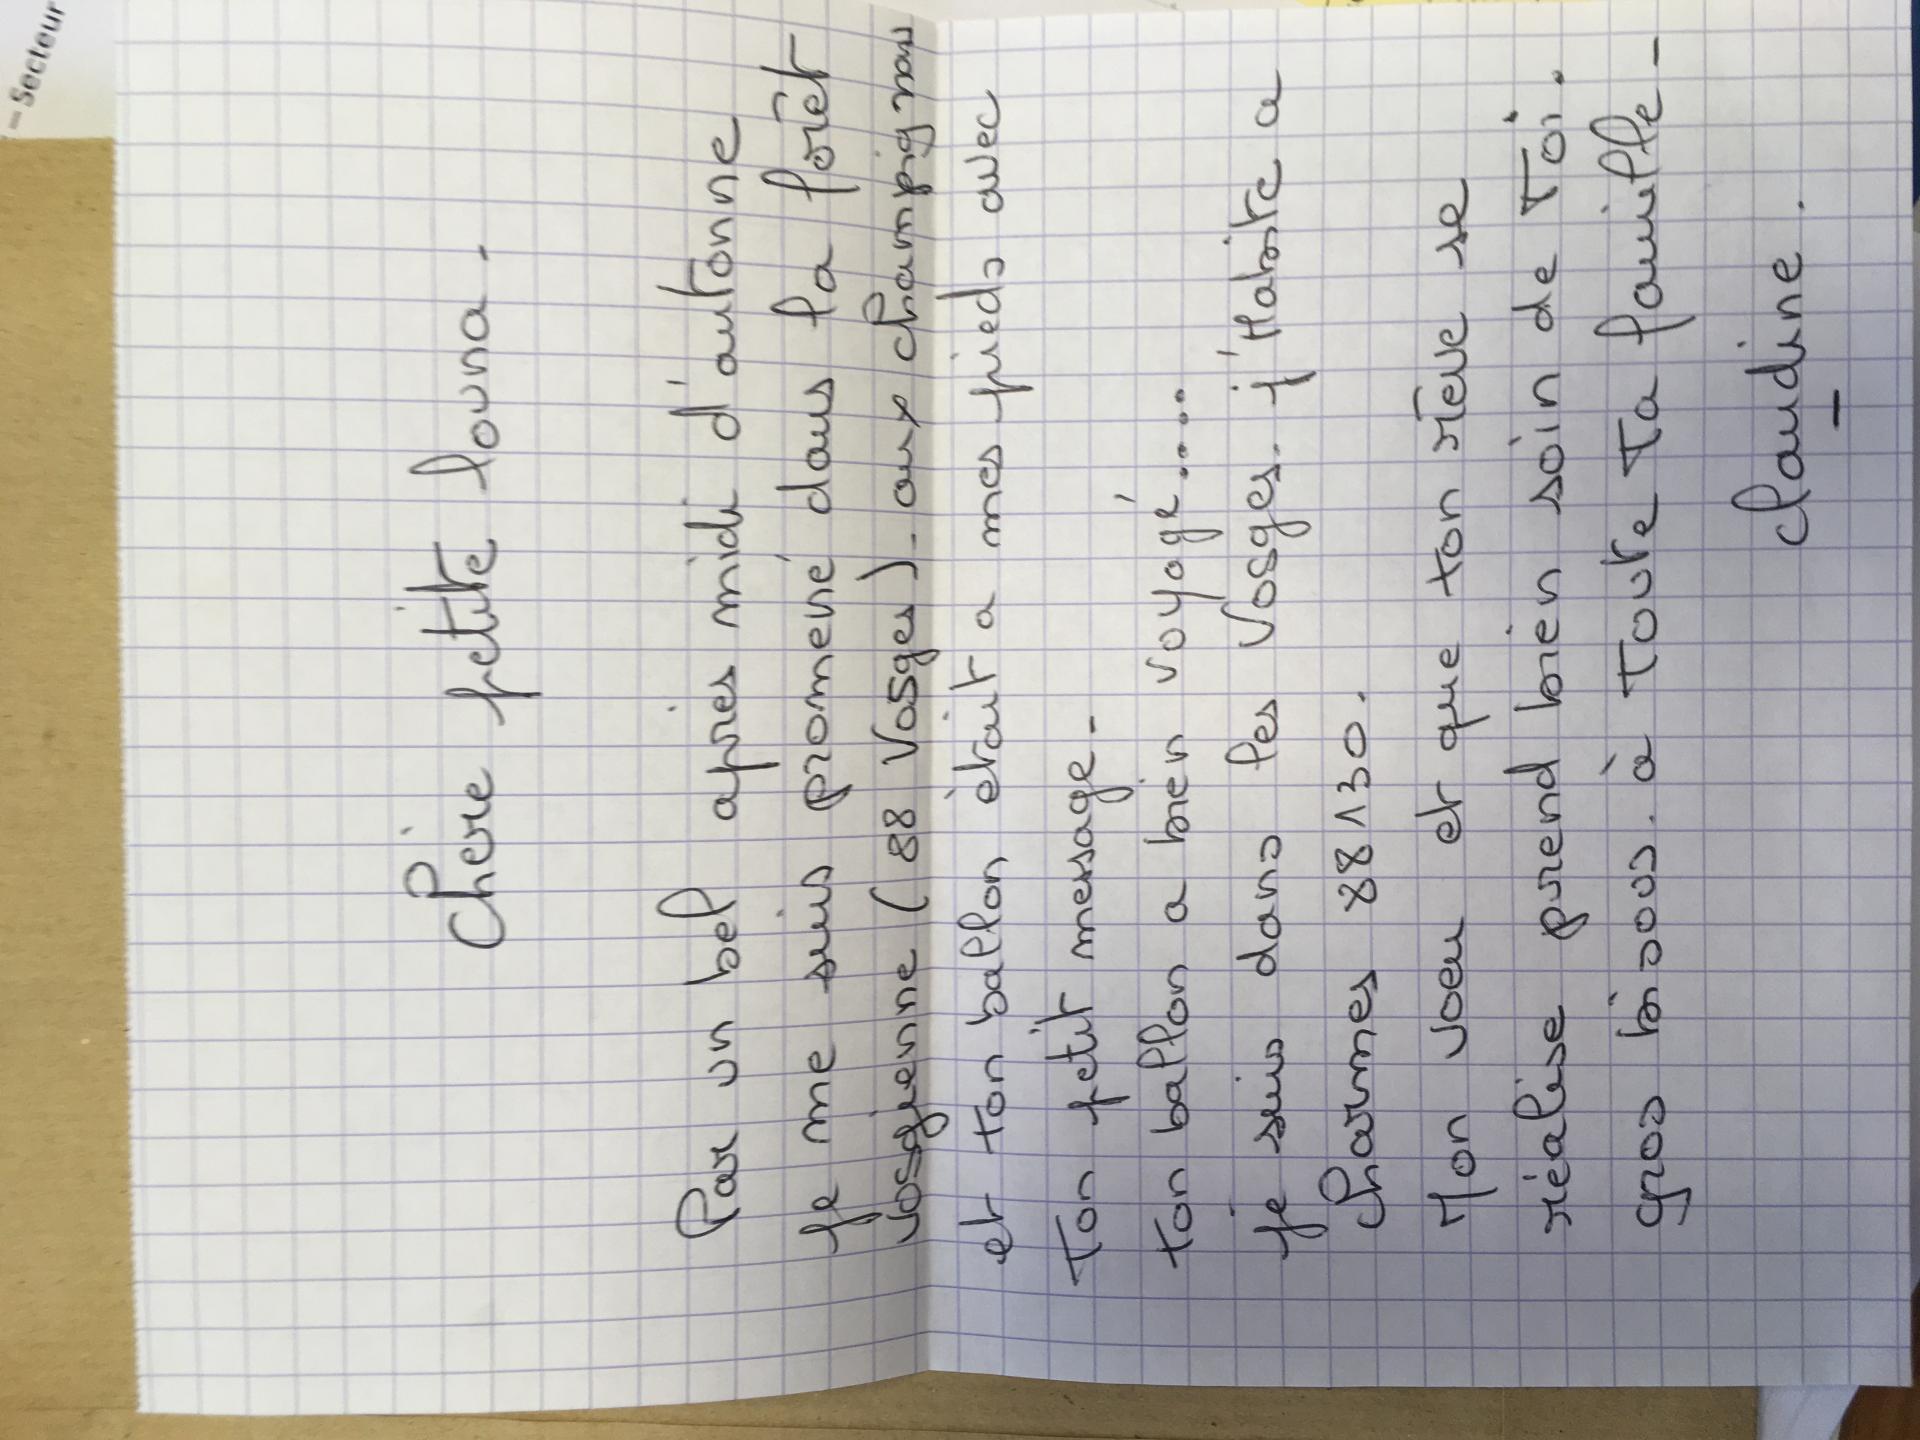 – Secteur
Chère petite Louna.
Par un bel après midi d'automne
je me suis promené dans la forêt
vosgienne (88 Vosges). aux champignons
et ton ballon était a mes pieds avec
Ton petit message -
ton ballon a bien voyagé.....
je suis dans les Vosges. j'Habite a
Charmes 88130.
Mon voeu et que ton rêve se
réalise prend bien soin de Toi.
gros bisous. à Toute Ta famille -
Claudine.